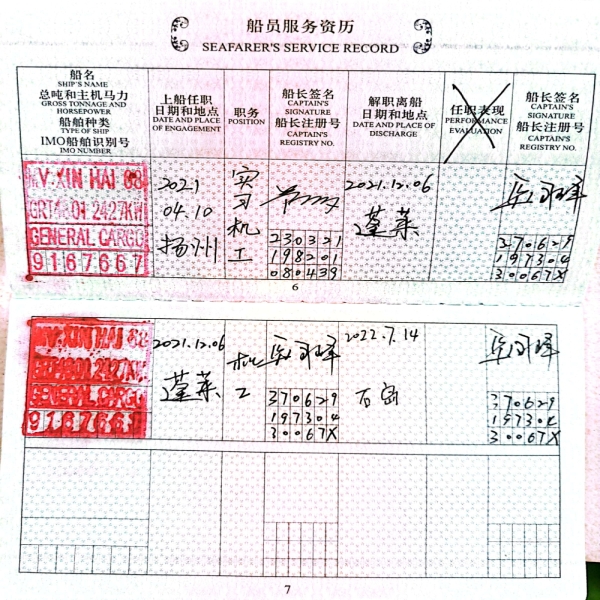 船员服务资历
SEAFARER'S SERVICE RECORD
船名
SHIP'S NAME
总吨和主机马力
GROSS TONNAGE AND
HORSEPOWER
船舶种类
TYPE OF SHIP
IMO船舶识别号
IMO NUMBER
上船任职
日期和地点
DATE AND PLACE
OF ENGAGEMENT
职务
POSITION
船长签名
CAPTAIN'S
SIGNATURE
船长注册号
CAPTAIN'S
REGISTRY NO.
解职离船
日期和地点
DATE AND PLACE OF
DISCHARGE
任职表现
PERFORMANCE
EVALUATION
船长签名
CAPTAIN'S
SIGNATURE
船长注册号
CAPTAIN'S
REGISTRY NO.
MV.XIN HAI 68
GRT4801 2427KW
GENERAL CARGO
9167667
2021
04.10
扬州
实习机工
230321
198201
080439
2021.12.06
蓬莱
370629
197304
30067X
6
MV.XIN HAI 68
GRT4801 2427KW
GENERAL CARGO
9167667
2021.12.06
蓬莱
机工
370629
197304
30067X
2022.7.14
370629
197304
30067X
7